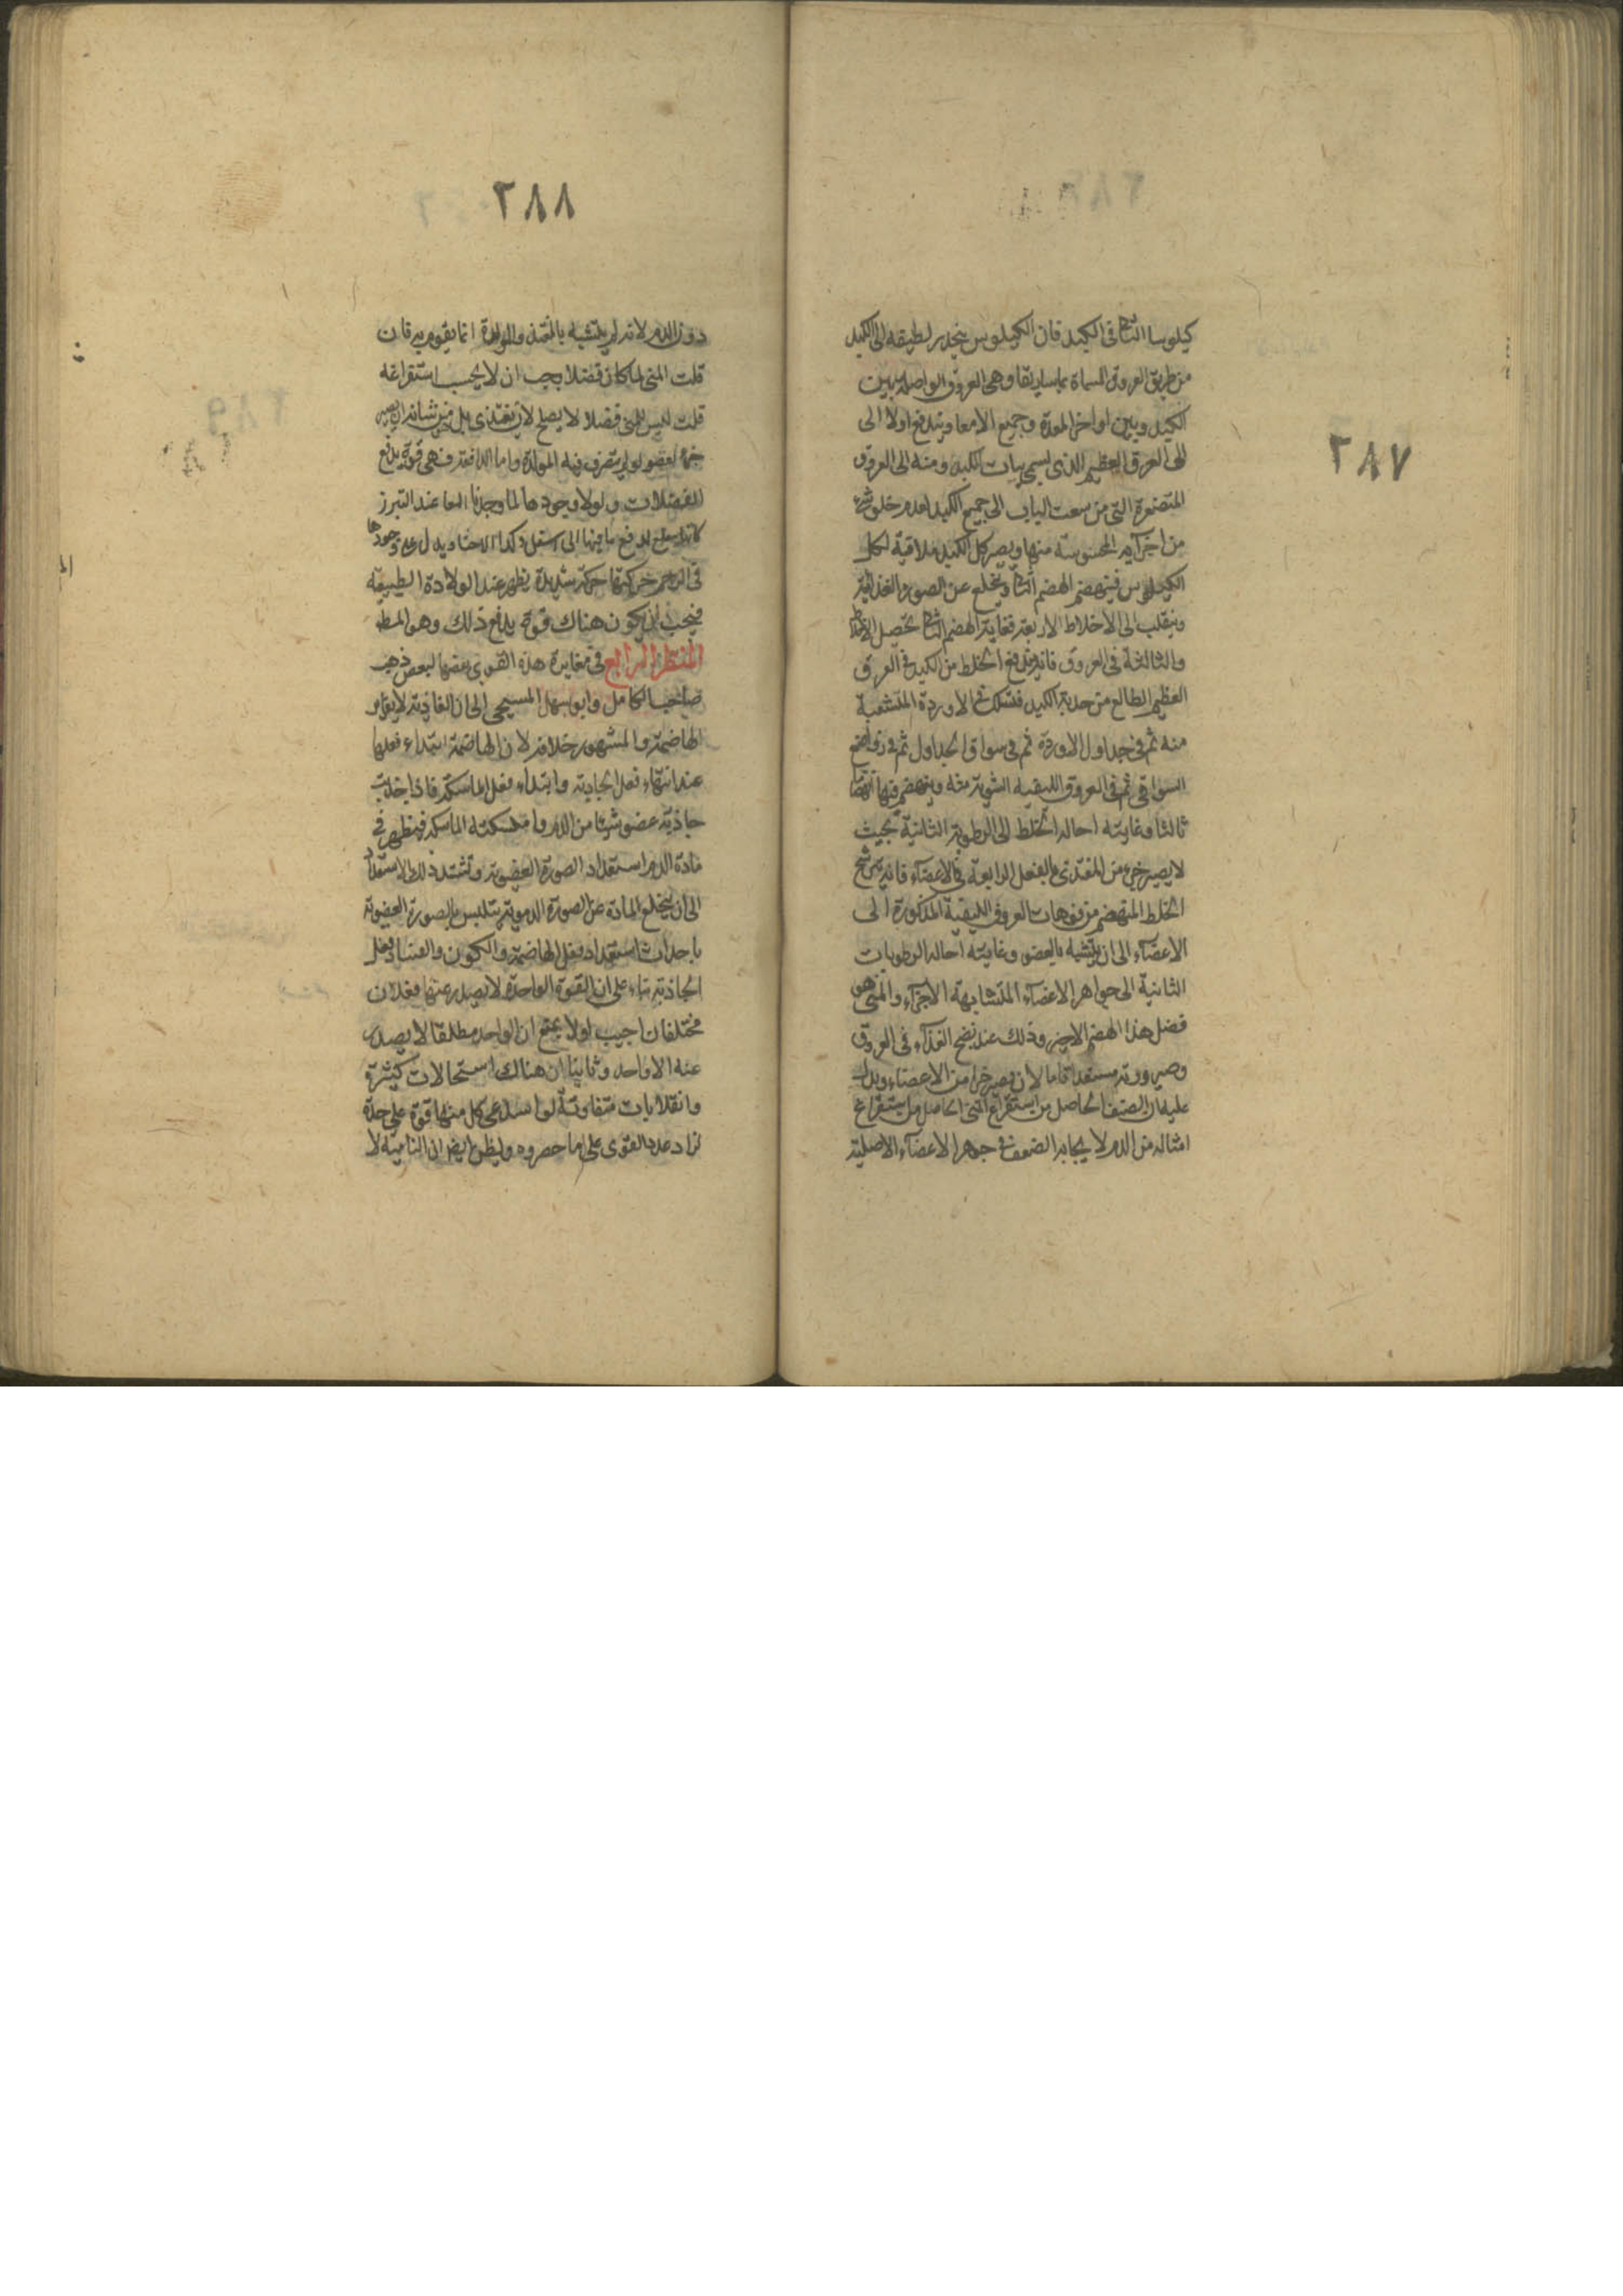 ٢٨٧
كيلوسا الثانى فى الكبد فان الكيلوس ينحدر لطيفه الى الكبد
من طريق العروق المسماة بماساريقا وهى العروق الواصلة بين
الكبد وبين اواخر المعدة وجميع الامعا ويندفع اولا الى
الى العرق العظيم الذى يسمى بباب الكبد ومنه الى العروق
المتصغرة التى من سعت الباب الى جميع الكبد لعدم خلو شىء
من اجزآيه المحسوسة منها ويصير كل الكبد ملاقية لكل
الكيلوس فينهضم الهضم الثانى وينخلع عن الصورة الغذائية
وينقلب الى الاخلاط الاربعة فغاية الهضم الثانى تحصيل الاخلاط
والثالثة فى العروق فانه يندفع الخلط من الكبد فى العرق
العظيم الطالع من حدبة الكبد فتسلك فى الاوردة المتشعبة
منه ثم فى جداول الاوردة ثم فى سواقى الجداول ثم فى رواضع
السواقى ثم فى العروق الليفية الشعرية منه وينهضم فيها انهضاما
ثالثا وغايته احالة الخلط الى الرطوبة الثانية بحيث
لا يصير جزء من المغتذى بالفعل الرابعة فى الاعضآء فانه يترشح
الخلط المنهضم من فوهات العروق الليفية المذكورة الى
الاعضآء الى ان يتشبه بالعضو وغايته احالة الرطوبات
الثانية الى جواهر الاعضآء المتشابهة الاجزآء والمنى هو
فضل هذا الهضم الاخير وذلك عند نضج الغذآء فى العروق
وصيرورته مستعدا تاما لان يصير جزا من الاعضاء ويدل
عليه ان الضعف الحاصل من استفراغ المنى الحاصل من استفراغ
امثاله من الدم لا يجابه الضعف فى جوهر الاعضآء الاصلية
٢٨٨
دون الدم لانه لم يتشبه بالمغتذى والمولدة انما يقوم به فان
قلت المنى لما كان فضلا يجب ان لا يجب استفراغه
قلت ليس المنى فضلا لا يصلح لان يغتذى بل من شانه ان يصير
جزء لعضو لو لم يتصرف فيه المولدة واما الدافعة فهى قوة يدفع
الفضلات ولولا وجودها لما وجدنا المعا عند التبرز
كانها لدفع ما فيها الى اسفل وكذا الاحشا ويدل على وجودها
فى الرحم حركتها حركة شديدة يظهر عند الولادة الطبيعية
فيجب ان يكون هناك قوة يدفع ذلك وهو المط
المنظر الرابع فى مغايرة هذه القوى بعضها لبعض ذهب
صاحب الكامل وابو سهل المسيحى الى ان الغاذية لا يغاير
الهاضمة والمشهور خلافه لان الهاضمة ابتداء فعلها
عند انتهاء فعل الجاذبة وابتداء فعل الماسكة فاذا جذبت
جاذبة عضو شيئا من الدم وامسكته الماسكة فيظهر فى
مادة الدم استعداد الصورة العضوية وتشتد ذلك الاستعداد
الى ان ينخلع المادة عن الصورة الدموية يتلبس بالصورة العضوية
باحداث استعداد فعل الهاضمة والكون والفساد فعل
الجاذبة بناء على ان القوة الواحدة لا يصدر عنها فعلان
مختلفان اجيب اولا بمنع ان الواحد مطلقا لا يصدر
عنه الا واحد وثانيا ان هناك استحالات كثيرة
وانقلابات متفاوتة لو استدعى كل منها قوة على حدة
لزاد عدد القوى على ما حصروه وليظن ايضا ان النامية لا